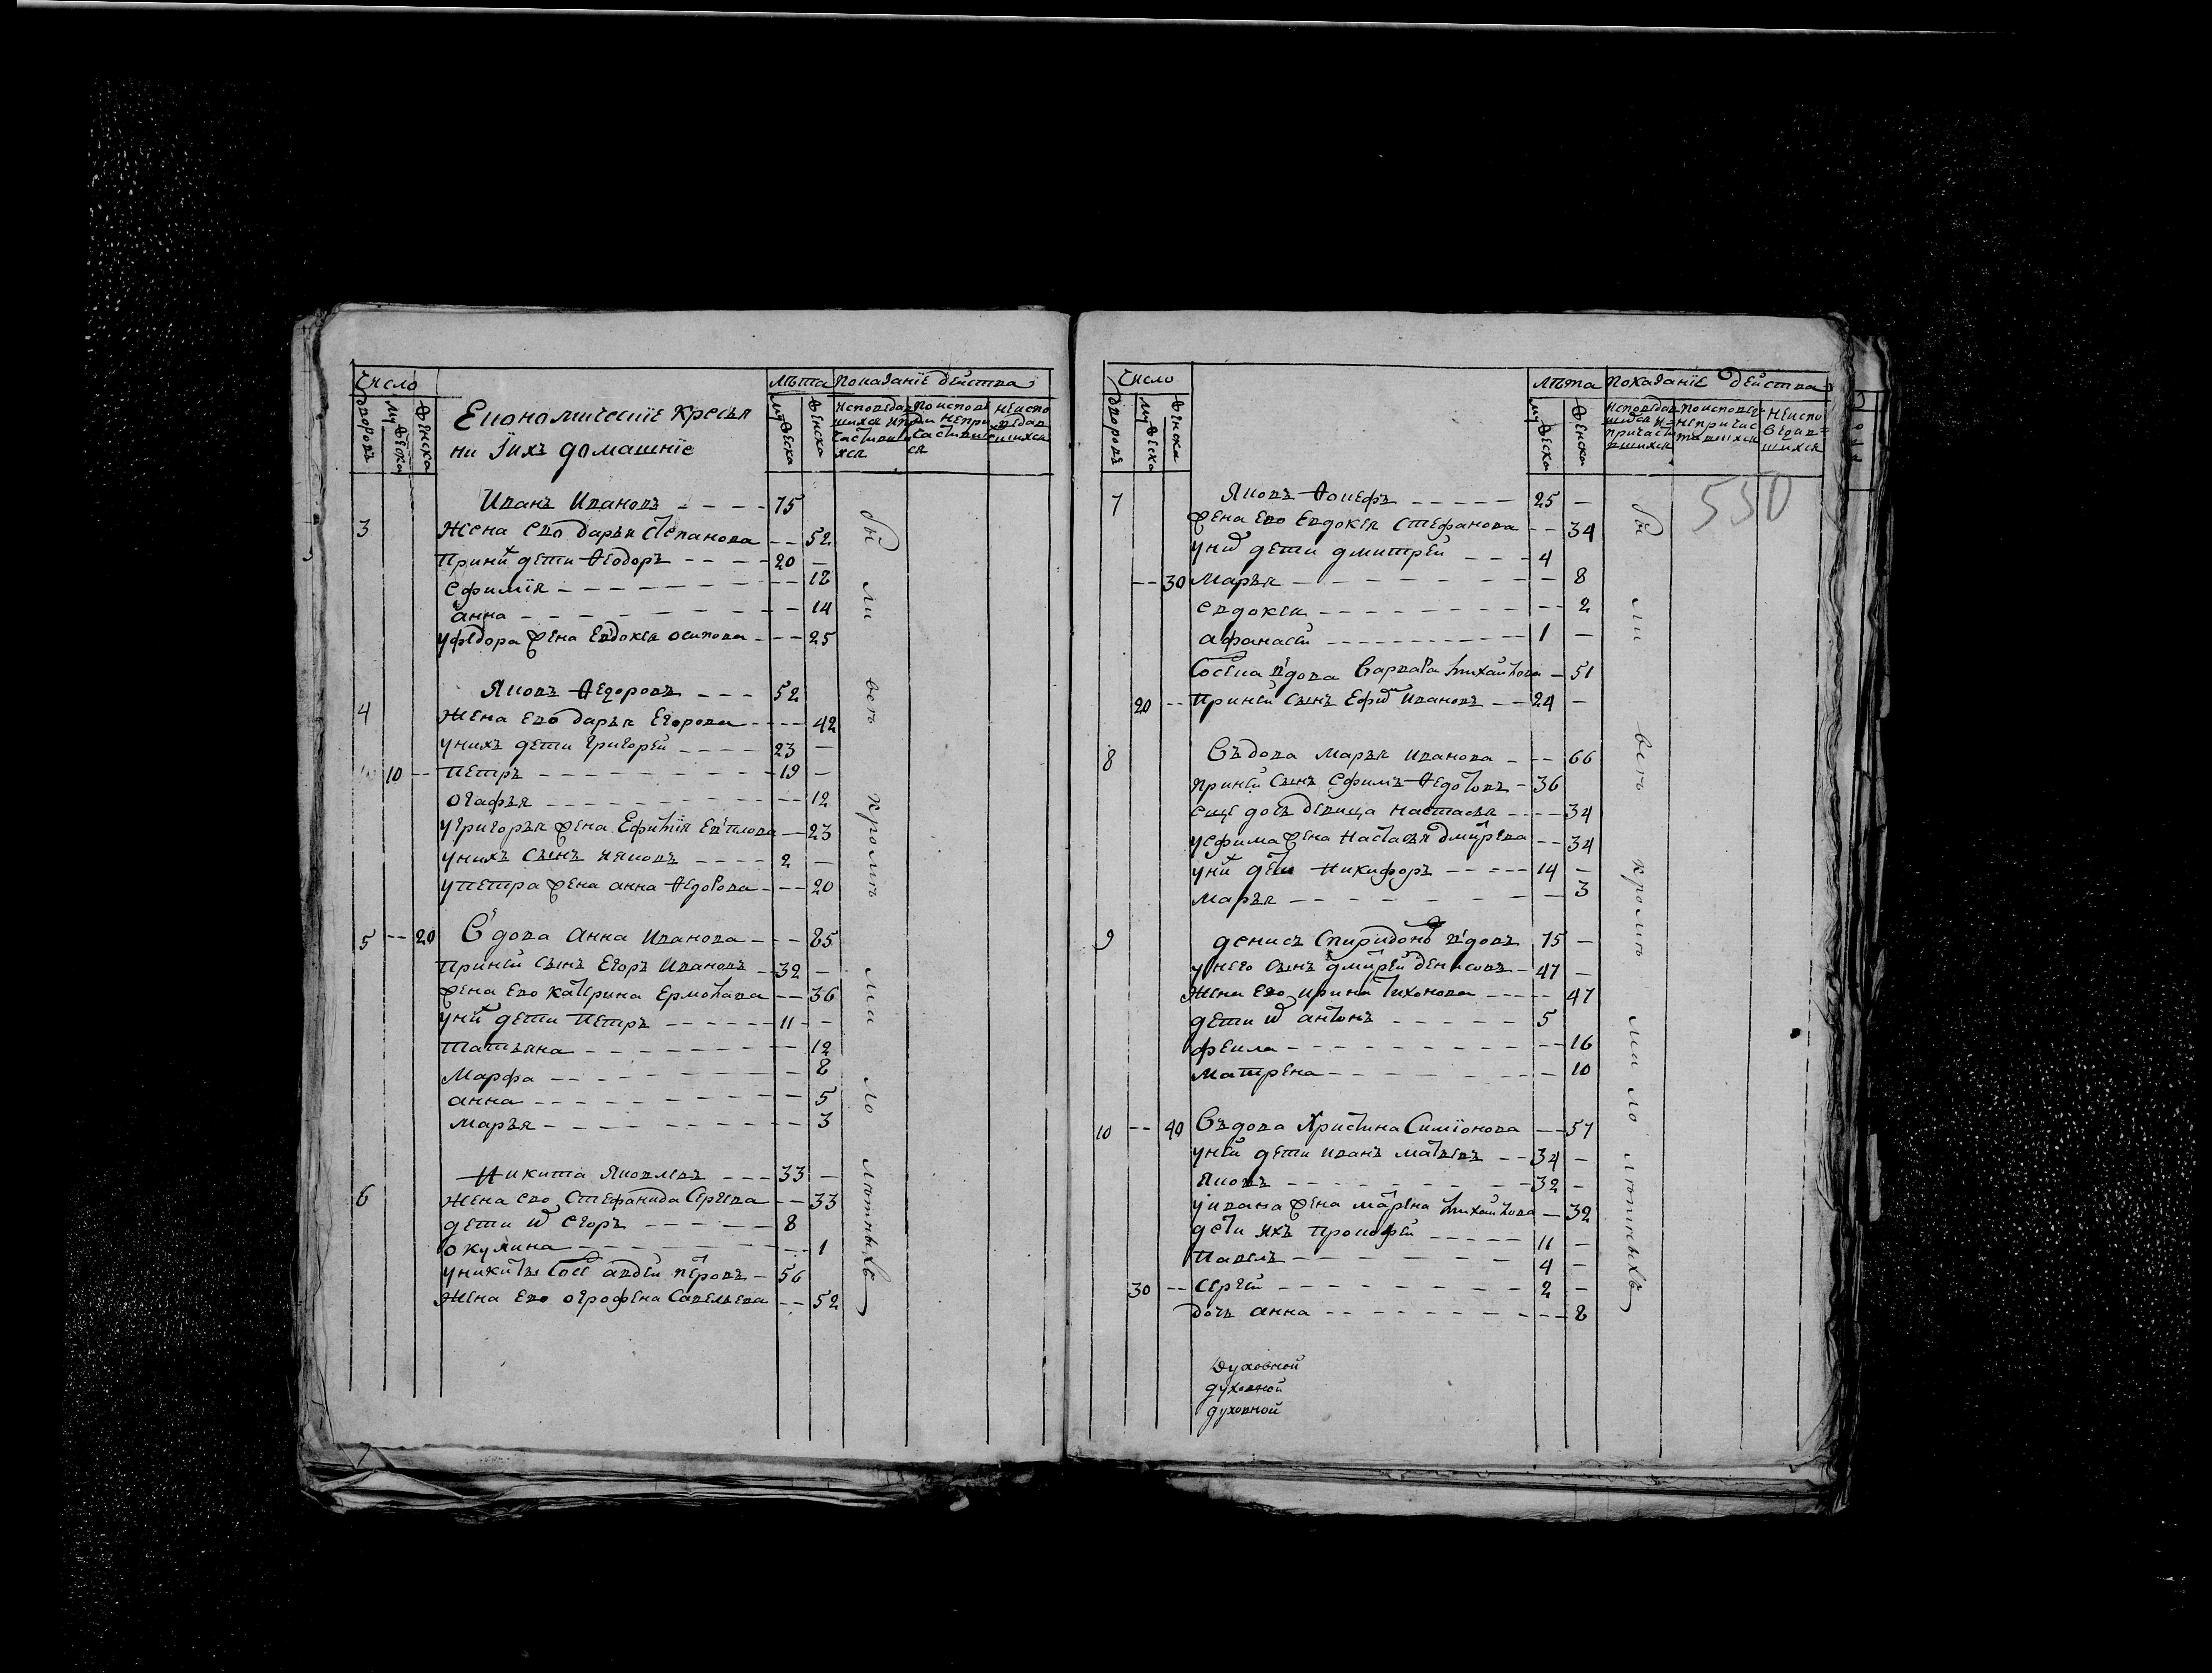 Число
лѣта показанїе действа
дворовъ
мужеска
женска
Економическїе кресья
ни їихъ домашнїе
мужеска
женска
исповедав
шихся ипри
частивши
хся
поиспове
ди непри
частивши
ся
неиспо
ведав
шихся
Иванъ Ивановъ - - - - 75
3
жена ево дарья степанова - - 52
принихъ дети Ѳеодоръ - - - - 20 -
ефимїя - - - - - - - - 18
анна - - - - - - - - 14
уфедора жена Евдокея осипова - - - 25
Яковъ Ѳедоровъ - - - 52
4
жена ево дарья Егорова - - - - 42
унихъ дети григорей - - - - 23 -
10 -- петръ - - - - - - - - 19 -
огафья - - - - - - - - 12
угригорья жена Ефимїя Евтлова - - 23
унихъ сынъ ияковъ - - - - 2 -
упетра жена анна Ѳедотова - - - 20
5 -- 20 Вдова Анна Иванова - - - 85
приней сынъ Егоръ Ивановъ - - 32 -
жена ево катерина Ермолава - - 36
унихъ дети Петръ - - - - - - 11 - -
татьяна - - - - - - - - 12
Марфа - - - - - - - - 8
анна - - - - - - - - 5
марья - - - - - - - - 3
Никита Яковлевъ - - - 33 -
6
жена ево Стефанида Сергева - - 33
дети их егоръ - - - - - - 8
окулина - - - - - - - - 1
уникиты авдей петровъ - 56
жена ево огрофена Савельева - - 52
были всѣ кромѣ мало лѣтныхъ
Число
лѣта показанїе действа
дворовъ
мужеска
женска
мужеска
женска
исповедав
шихся и
причасти
вшихся
поисповед
непричас
тившихся
неиспо
ведав=
шихся
530
7
Яковъ Ѳокефъ - - - - - - 25 -
жена ево Евдокея стефанова - - 34
уних дети дмитрей - - - - 4
-- 30 марья - - - - - - - - 8
евдокея - - - - - - - - 2
афанасей - - - - - - - - 1 -
вдова Варвара михайлова - 51
20 -- приней сынъ Ефим Ивановъ - - 24 -
8
Въдова марья иванова - - - 66
приней сынъ ефимъ Ѳедотовъ - 36
еще дочь девица настасья - - - - 34
уефима жена настасья дмитрева - - 34
уних дети Никифоръ - - - - - 14 -
марья - - - - - - - - 3
9
денисъ спиридоновъ вдовъ 75 -
унего сынъ дмитрей денисовъ - 47 -
жена ево ирина тихонова - - - - - 47
дети их антонъ - - - - - 5
фекла - - - - - - - - 16
матрена - - - - - - - - 10
10 -- 40 Въдова Христина Симїонова - - 57
уней дети иванъ матвевъ - - 34 -
яковъ - - - - - - - - 32 -
уивана жена марина михайлова - 32
дети ихъ прокофей - - - - - 11 -
павелъ - - - - - - - - 4 -
30 -- сергей - - - - - - - - 2 -
дочь анна - - - - - - - - 8
были всѣ кромѣ мало лѣтныхъ
духовной
духовной
духовной